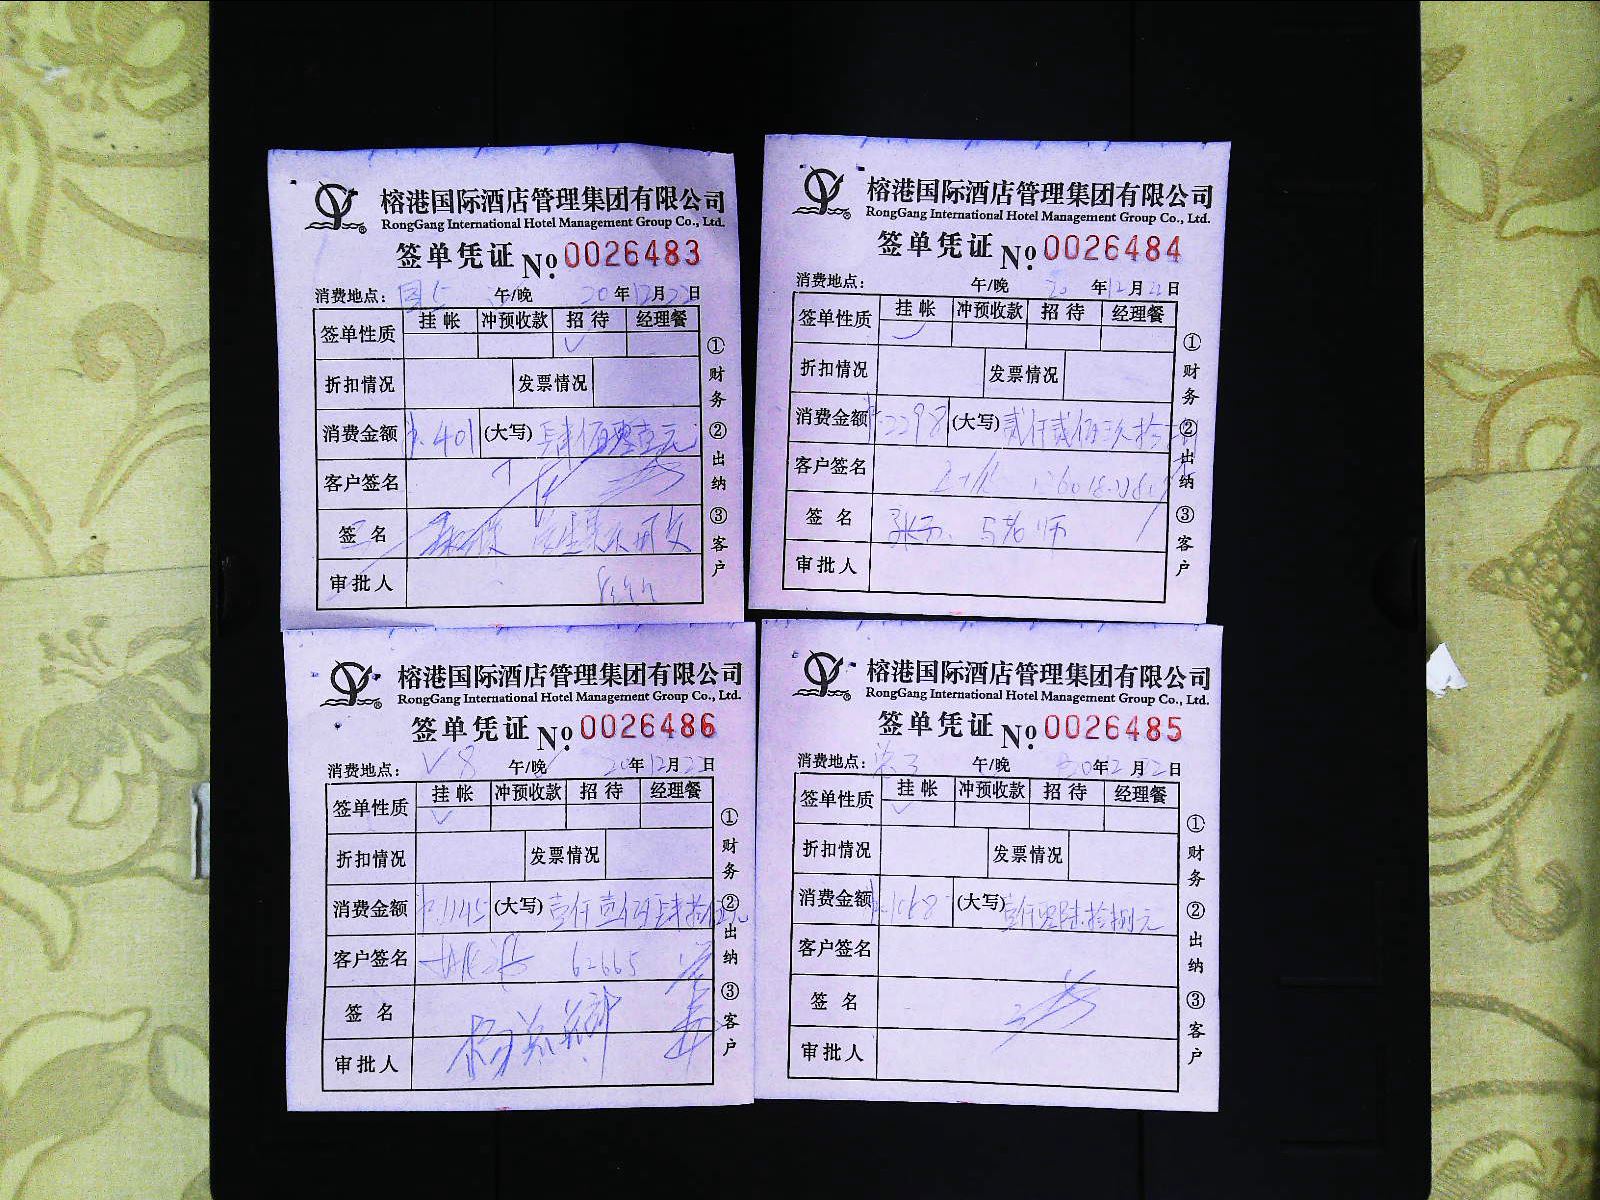 榕港国际酒店管理集团有限公司
RongGang International Hotel Management Group Co., Ltd.
签单凭证 No. 0026483
消费地点： 午/晚 20年12月22日
签单性质 挂帐 冲预收款 招待 经理餐
✓
折扣情况 发票情况
消费金额 ¥401 (大写) 肆佰零壹元
客户签名
签名
审批人
①财务 ②出纳 ③客户
榕港国际酒店管理集团有限公司
RongGang International Hotel Management Group Co., Ltd.
签单凭证 No. 0026484
消费地点： 午/晚 20年12月22日
签单性质 挂帐 冲预收款 招待 经理餐
✓
折扣情况 发票情况
消费金额 ¥2298 (大写) 贰仟贰佰玖拾
客户签名
签名
审批人
①财务 ②出纳 ③客户
榕港国际酒店管理集团有限公司
RongGang International Hotel Management Group Co., Ltd.
签单凭证 No. 0026486
消费地点： V8 午/晚 20年12月22日
签单性质 挂帐 冲预收款 招待 经理餐
✓
折扣情况 发票情况
消费金额 ¥1145 (大写) 壹仟壹佰肆拾伍元
客户签名 62665
签名
审批人
①财务 ②出纳 ③客户
榕港国际酒店管理集团有限公司
RongGang International Hotel Management Group Co., Ltd.
签单凭证 No. 0026485
消费地点： 午/晚 20年12月22日
签单性质 挂帐 冲预收款 招待 经理餐
✓
折扣情况 发票情况
消费金额 ¥1068 (大写) 壹仟零陆拾捌元
客户签名
签名
审批人
①财务 ②出纳 ③客户